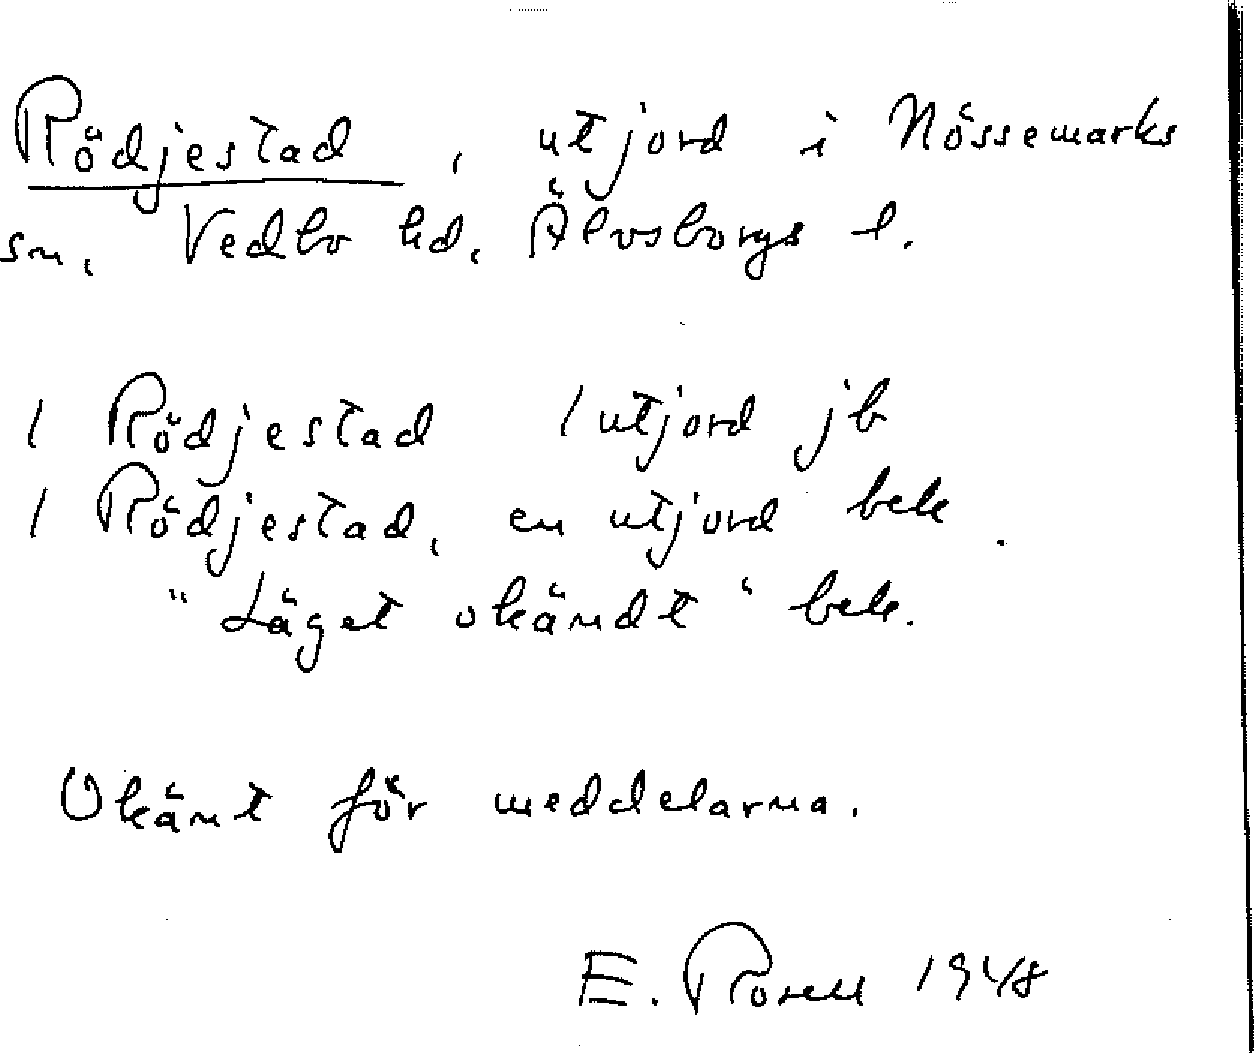 Rödjestad, utjord i Nössemarks
sn, Vedbo hd, Älvsborgs l.
1 Rödjestad 1 utjord jb
1 Rödjestad, en utjord bek.
"Läget okändt" bek.
Okänt för meddelarna.
E. Rosell 1948